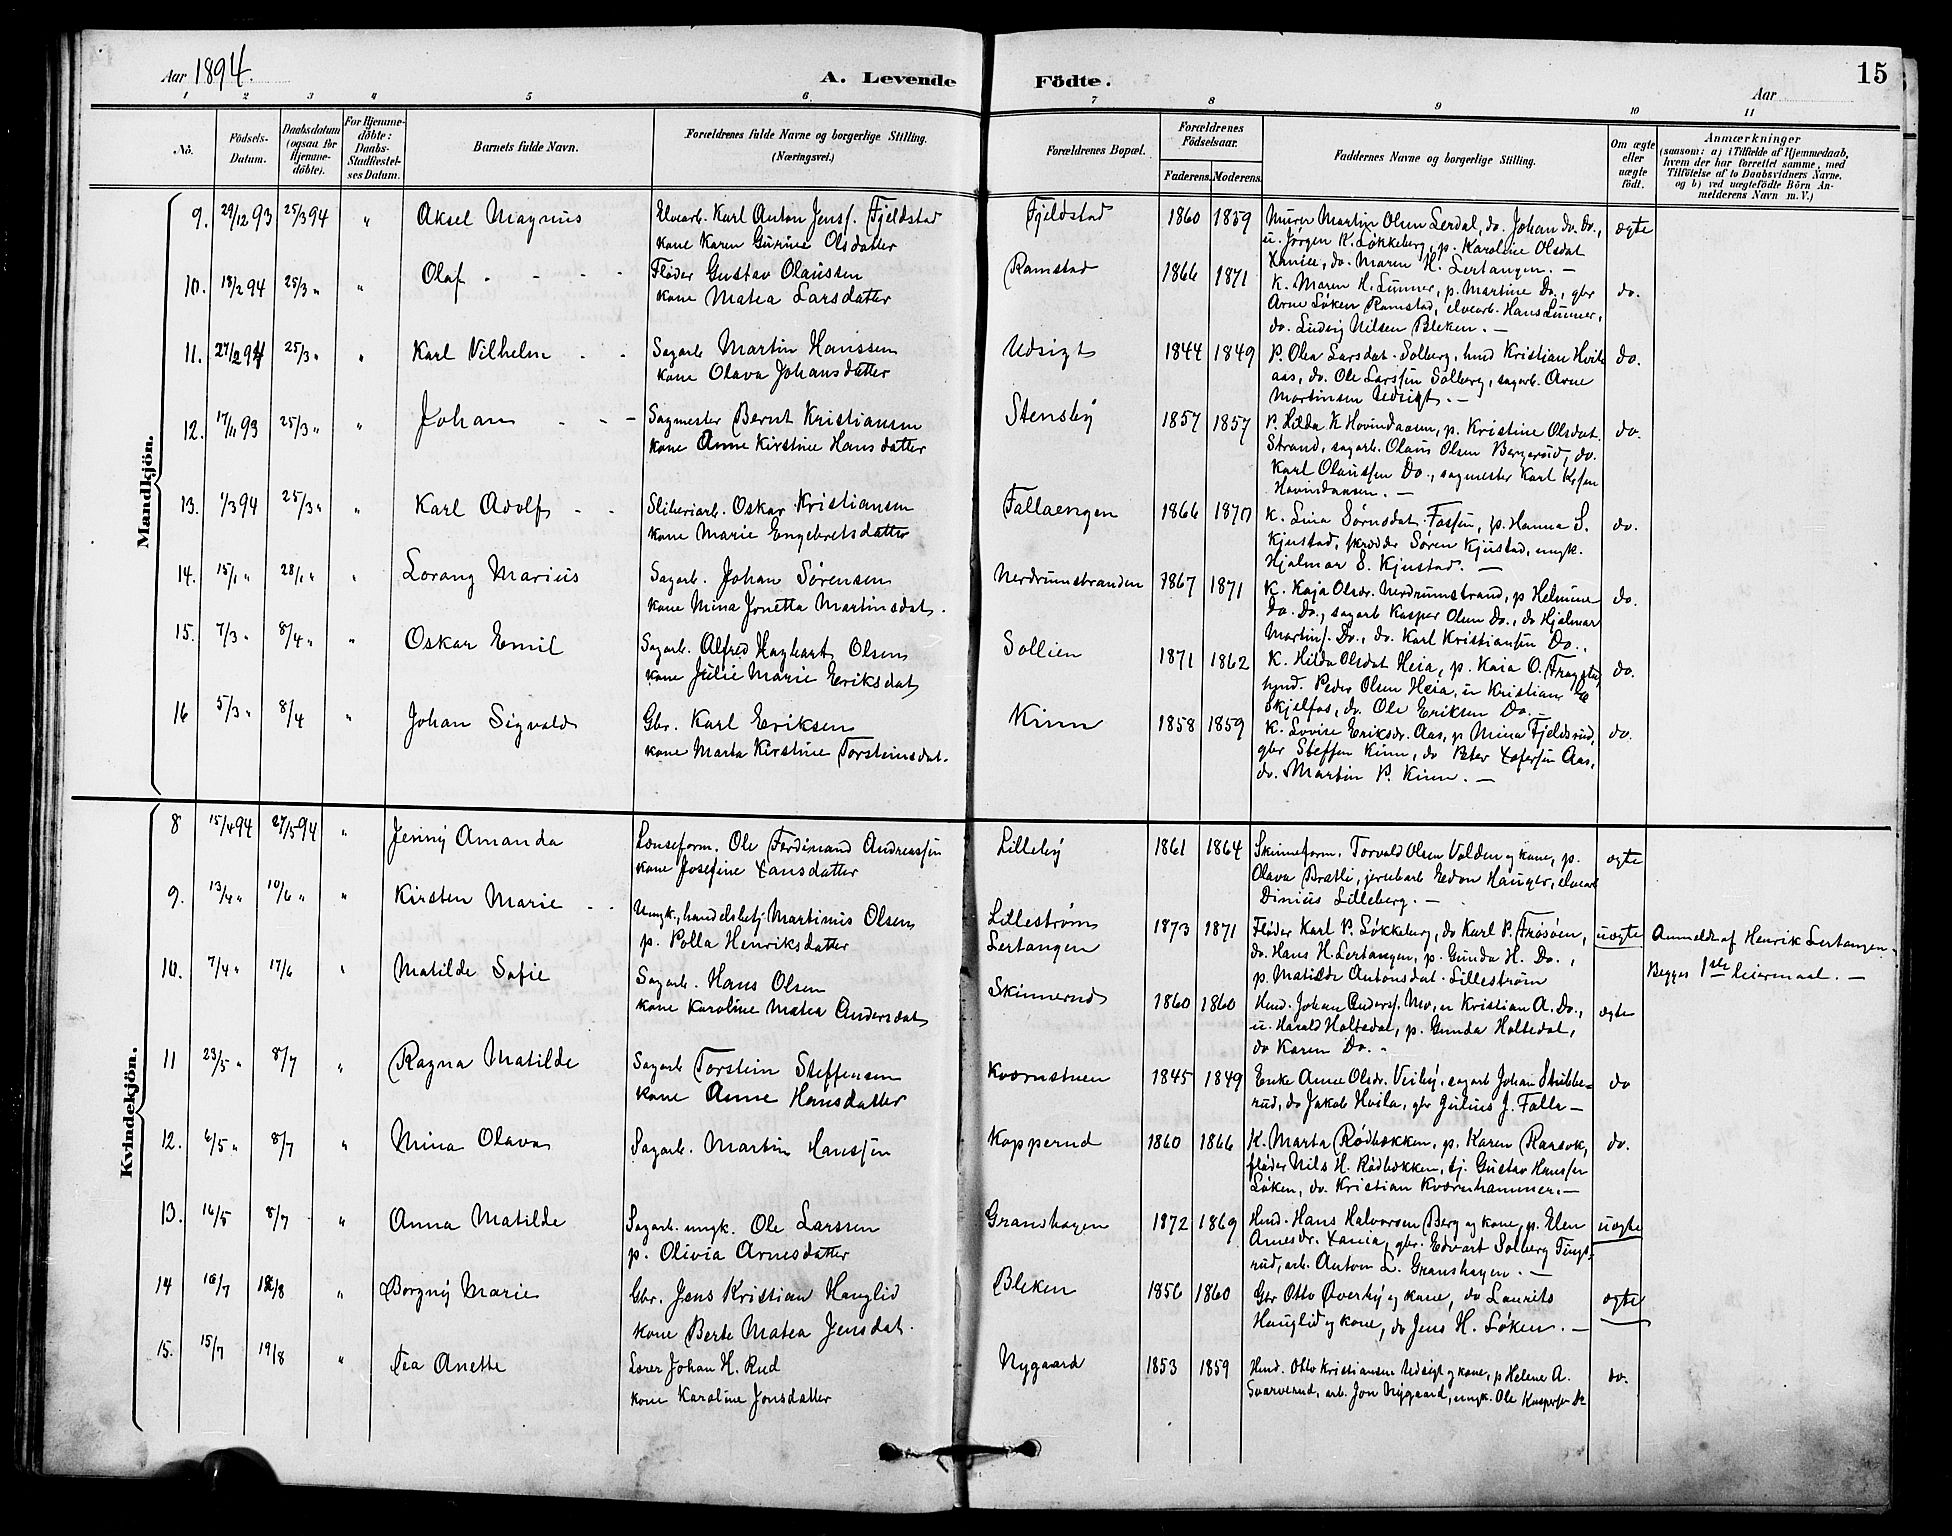 Aar 1894.
A. Levende Födte.
Aar
15
1 2 3 4 5 6 7 8 9 10 11
No.
Födsels-Datum.
Daabsdatum (ogsaa for Hjemme-döbte).
For Hjemme-döbte: Daabs-Stadfæstel-ses Datum.
Barnets fulde Navn.
Forældrenes fulde Navne og borgerlige Stilling.
(Næringsvei.)
Forældrenes Bopæl.
Forældrenes Födselsaar.
Faderens. Moderens.
Faddernes Navne og borgerlige Stilling.
Om ægte eller uægte födt.
Anmærkninger
(saasom: a) i Tilfælde af Hjemmedaab,
hvem der har forrettet samme, med
Tilföielse af to Daabsvidners Navne.
og b) ved uægtefödte Börn An-
melderens Navn m. V.)
Mandkjön.
9. 29/12 93 25/3 94 " Aksel Magnus
Elvearb. Karl Anton Jens. Fjeldstad
kone Karen Gurine Olsdatter
Fjeldstad 1860 1859
Murer Martin Olsen Lerdal, do. Johan do. Do.,
u. Jørgen K. Løkkeberg, p. Karoline Olsdat
Xania, do. Maren H. Lertangen. —
ægte
10. 18/2 94 25/3 " " Olaf - - -
Fløder Gustav Olaussen
kone Matea Larsdatter
Ramstad 1866 1871
K. Maren H. Lunner, p. Martine Do., gbr
Arne Løken Ramstad, elvearb. Hans Lunner,
do. Ludvig Nilsen Bleken. —
do.
11. 27/2 94 25/3 " " Karl Vilhelm - -
Sagarb Martin Hanssen
kone Olava Johansdatter
Udsigt 1844 1849
P. Olea Larsdat. Solberg, hmd Kristian Hvile
aas, do. Ole Larssen Solberg, sagarb. Arne
Martinsen Udsigt. —
do.
12. 17/11 93 25/3 " " Johan - - -
Sagmester Bernt Kristiansen
kone Anne Kirstine Hansdatter
Stensby 1857 1857
P. Hilda K Hovindaasen, p. Kristine Olsdat.
Strand, sagarb. Olaus Olsen Bergerud, do.
Karl Olaussen Do., sagmester Karl Krsen
Hovindaasen. —
do.
13. 1/3 94 25/3 " " Karl Adolf - -
Sliberiarb. Oskar Kristiansen
kone Marie Engebretsdatter
Fallaengen 1866 1870
K. Lina Sørnsdat. Fossen, p. Hanna S.
Kjustad, skrædder Søren Kjustad, ungk.
Hjalmar S. Kjustad. —
do.
14. 15/1 " 28/1 " " Lorang Marius
Sagarb. Johan Sørensen
kone Mina Jonetta Martinsdat.
Nerdrumstranden 1867 1871
K. Kaja Olsdr. Nerdrumstrand, p Helmine
Do. Do., sagarb Kasper Olsen Do., do Hjalmar
Martins. Do., do. Karl Kristiansen Do.
do.
15. 7/3 " 8/4 " " Oskar Emil
Sagarb. Alfred Hagbart Olsen
kone Julie Marie Eriksdat
Sollien 1871 1862
K. Hilda Olsdat Heia, p. Kaia O.
hmd. Peder Olsen Heia, u Kristian E
Skjelfos, do. Ole Eriksen Do.
do.
16 5/3 " 8/4 " Johan Sigvald
Gbr. Karl Eriksen
kone Marta Kirstine Torsteinsdat.
Kinn 1858 1859
K. Lovise Eriksdr. Aas, p. Mina Fjeldsrud,
gbr Steffen Kinn, do Peter Xofersen Aas,
do. Martin P. Kinn. —
do.
Kvindekjön.
8 15/4 94 27/5 94 " Jenny Amanda
Lænseform. Ole Ferdinand Andreassen
kone Josefine Xansdatter
Lilleby 1861 1864
Skinneform. Torvald Olsen Volden og kone, p.
Olava Bratli, jernbarb Edvin Hauger, elvearb
Dinius Lilleberg. —
ægte
9. 13/4 " 10/6 " " Kirsten Marie - -
Ungk., handelsbetj. Martinus Olsen
p. Polla Henriksdatter
Lillestrøm
Lertangen
1873 1871
Fløder Karl P. Løkkeberg, do Karl P. Frøsøen,
do. Hans H. Lertangen, p. Gunda H. Do.,
p. Matilde Antonsdat. Lillestrøm
uægte
Anmeldt af Henrik Lertangen.
Begges 1ste leiermaal. —
10. 7/4 " 17/6 " Matilde Sofie
Sagarb. Hans Olsen
kone Karoline Matea Andersdat
Skinnerud 1860 1860
Hmd. Johan Anders. Mo, u Kristian A. Do.,
u. Harald Holtedal, p. Gunda Holtedal,
do Karen Do. -
ægte
11 23/5 " 8/7 " Ragna Matilde
Sagarb Torstein Steffensen
kone Anne Hansdatter
Kværnstuen 1845 1849
Enke Anne Olsdr. Veiby, sagarb Johan Stubbe-
rud, do Jakob Hvila, gbr Julius J. Falla —
do
12. 6/5 " 8/7 " Mina Olava
Sagarb. Martin Hanssen
Kopperud 1860 1866
K. Marta Rødbækken, p. Karen Raasok,
fløder Nils H. Rødbækken, tj. Gustav Hanssen
Løken, do. Kristian Kværnhammer. —
do.
13. 16/5 8/7 " Anna Matilde
Sagarb. ungk. Ole Larssen
p. Olivia Arnesdatter
Granshagen 1872 1869
Hmd. Hans Halvorsen Berg og kone, p. Elen
Arnesdr. Xania, gbr. Edvart Solberg Tings-
rud, arb. Anton L. Granshagen. —
uægte
14 16/7 12/8 " Borgny Marie
Gbr. Jens Kristian Hauglid
kone Berte Matea Jensdat.
Bleken 1856 1860
Gbr Otto Øverby og kone, do Laurits
Hauglid og kone, do Jens H. Løken. —
ægte
15. 15/7 19/8 " Tea Anette
Lærer Johan H. Rud
kone Karoline Jonsdatter
Nygaard 1853 1859
Hmd. Otto Kristiansen Udsigt og kone, p Helene A.
Svarverud, arb. Jon Nygaard, ungk. Ole Kaspersen Do
do.